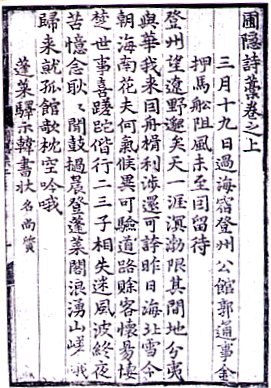 圃隱詩藁卷之上
三月十九日過海宿登州公館郭通事金
押馬舩阻風未至因留待
登州望遼野邈矣天一涯溟渤限其間地分夷
與華我來因舟楫利涉還可誇昨日海北雪今
朝海南花夫何氣候異可驗道路賒客懷易悽
楚世事喜蹉跎偕行二三子相失迷風波終夜
苦憶念耿〻聞鼓撾晨登蓬萊閣浪湧山嵯峨
歸來就孤館欹枕空吟哦
蓬萊驛示韓書狀 名尚質